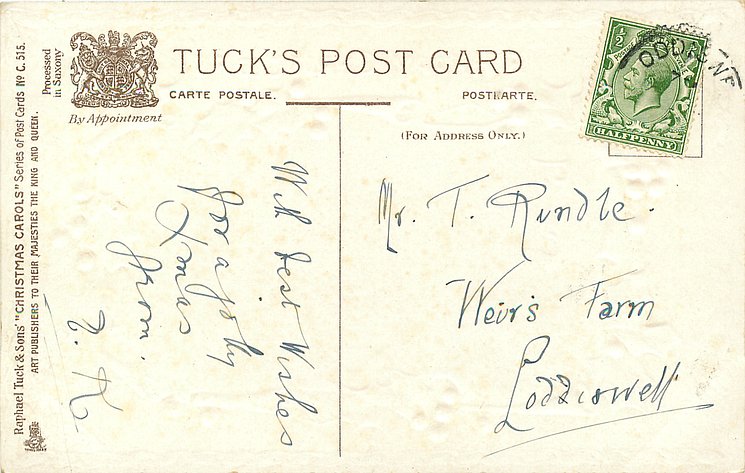 Raphael Tuck & Sons' "CHRISTMAS CAROLS" Series of Post Cards No C. 515.
ART PUBLISHERS TO THEIR MAJESTIES THE KING AND QUEEN.
Processed
in Saxony
By Appointment
TUCK'S POST CARD
CARTE POSTALE.
POSTKARTE.
(FOR ADDRESS ONLY.)
1/2
HALFPENNY
With best Wishes
for a jolly
Xmas
from.
Mr. T. Rundle.
Weir's Farm
Loddiswell